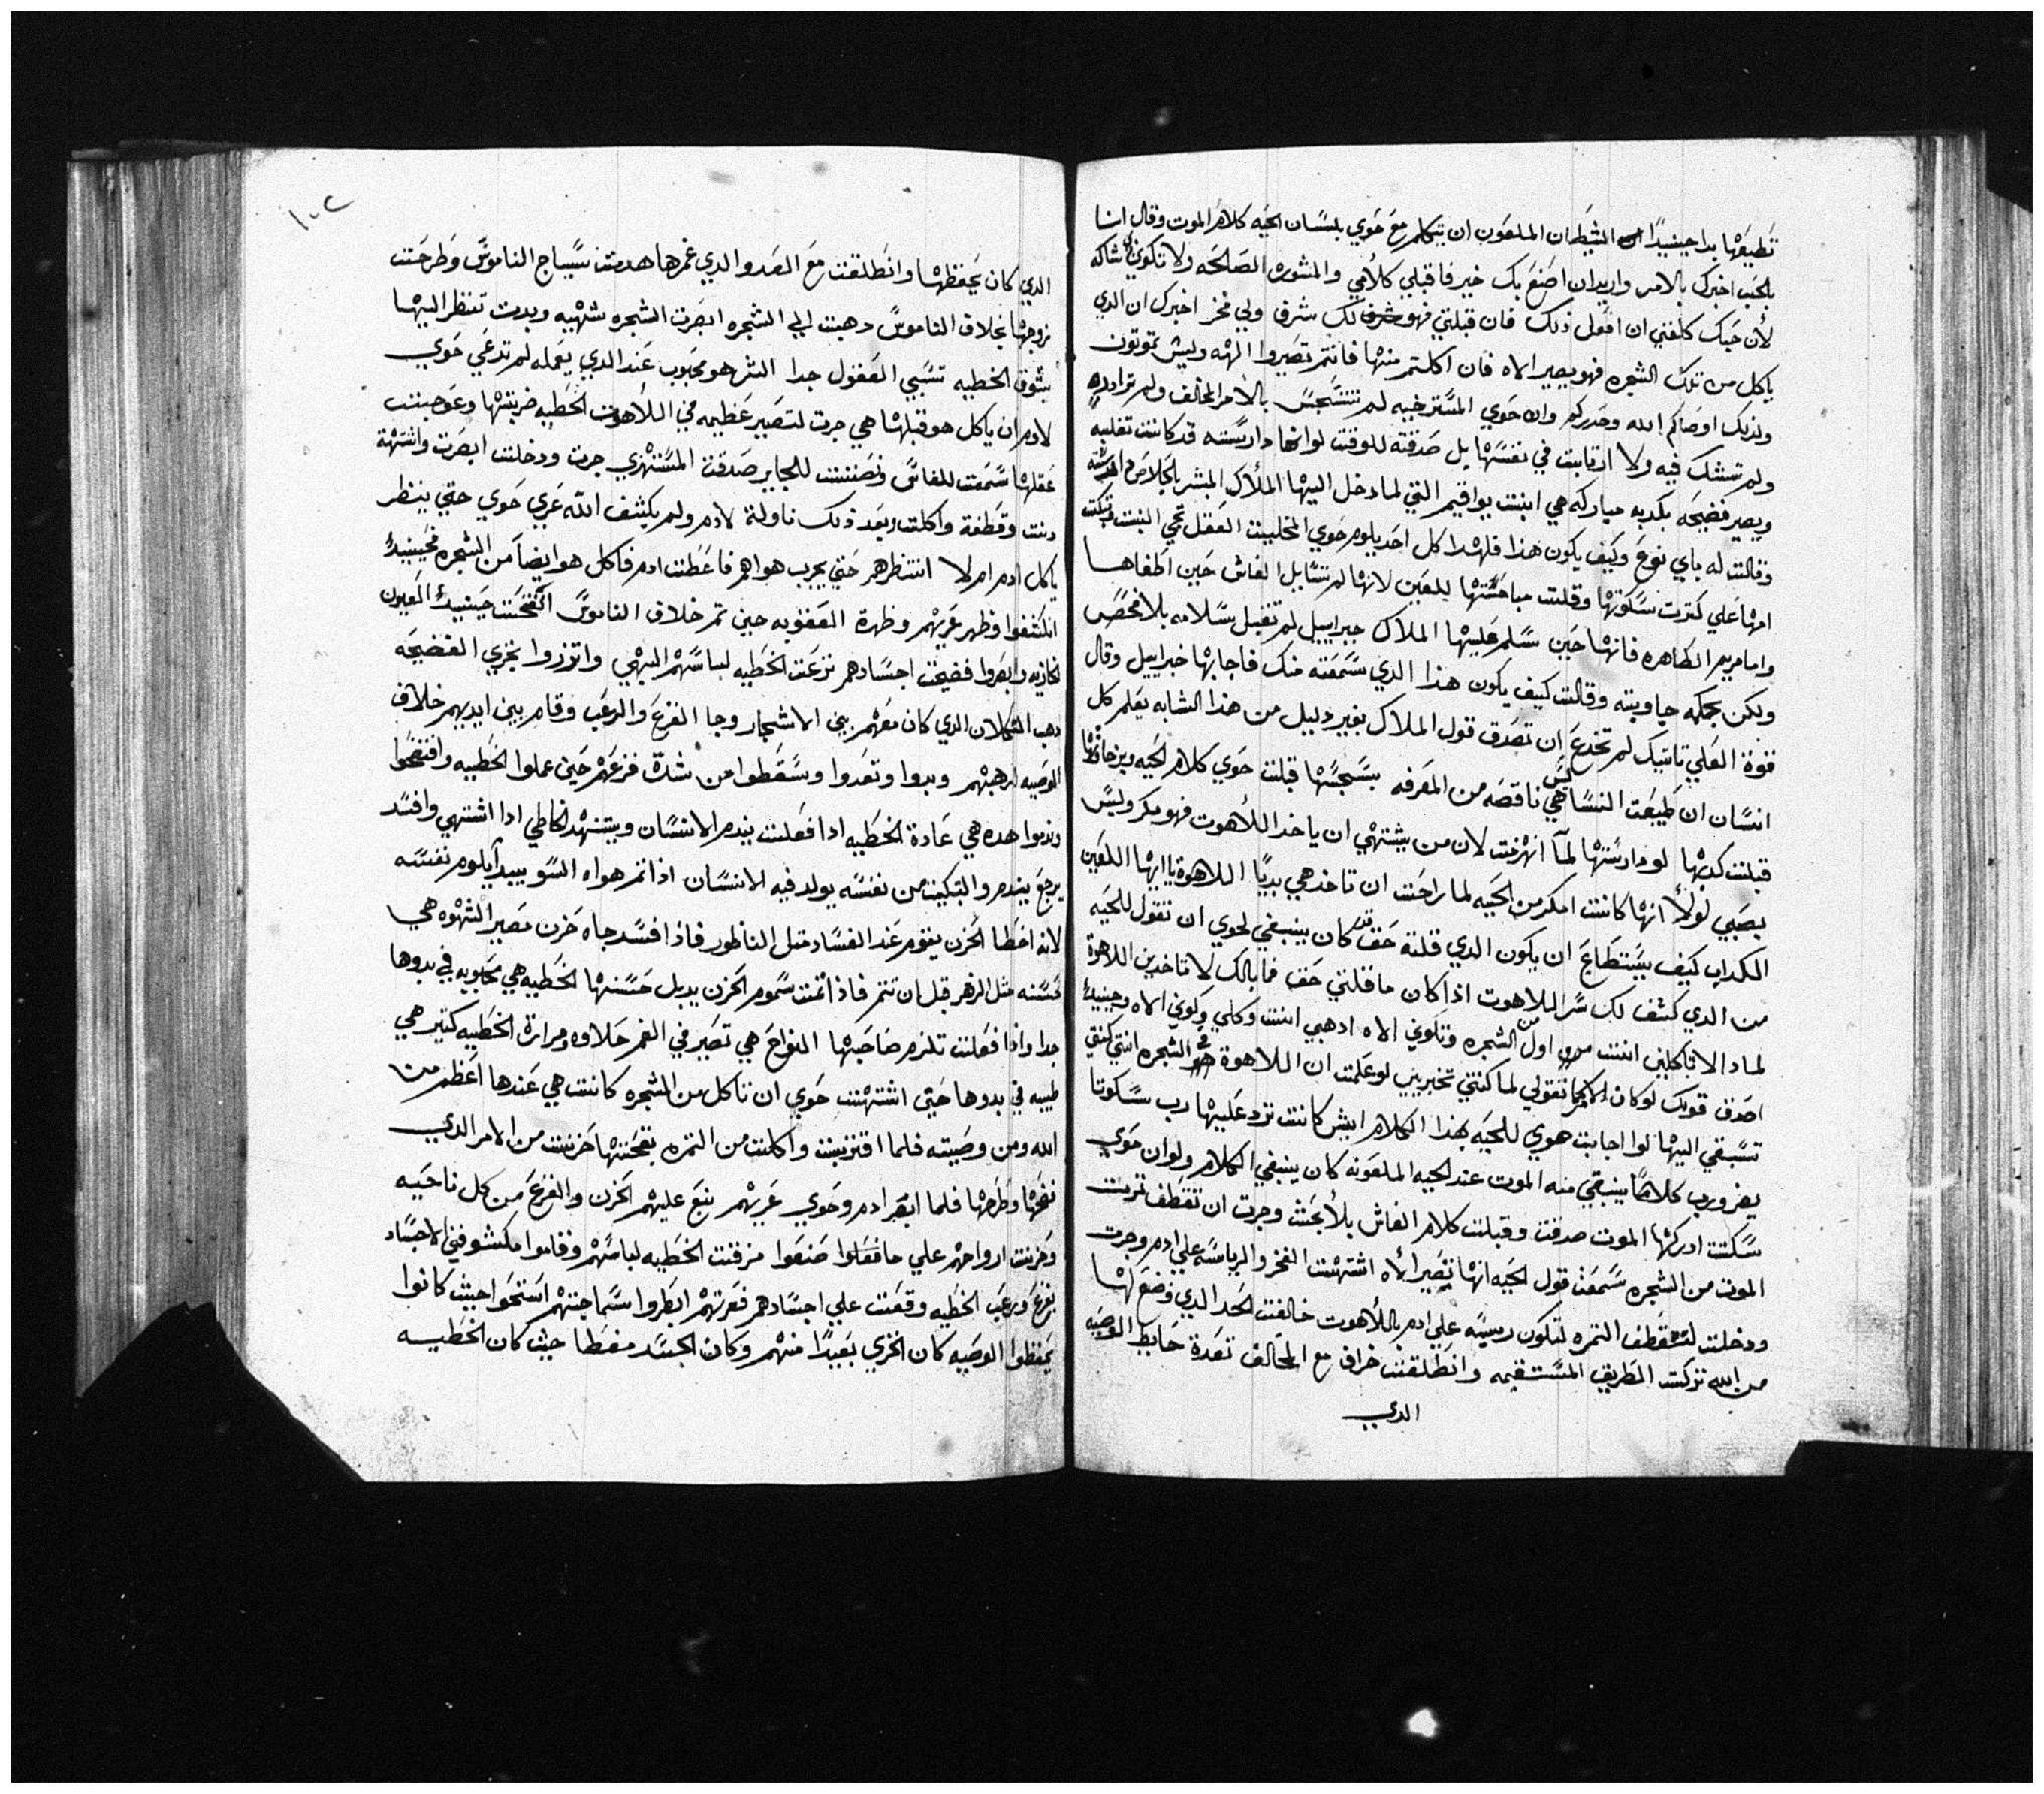 تطيعها بدا حينيدًا الشيطان الملعون ان يتكلم مع حوي بلسان الحيه كلام الموت وقال انا
بالحب اخبرك بالامر واريد ان اصنع بك خير فاقبلي كلامي والمشوره الصالحه ولا تكوني شاكه
لأن حبك كلفني ان افعل ذلك فان قبلتي فهو لك شرف ولي فخر اخبرك ان الدي
ياكل من تلك الشجره فهو يصير الاه فان اكلتم منها فانتم تصيروا الهه وليش تموتون
ولذلك اوصاكم الله وحدركم وان حوي المسترخيه لم تتسجس بالامر المخالف ولم تراددها
ولم تشك فيه ولا ارتابت في نفسها بل صدقته للوقت لو انها دارسته قد كانت تغلبه
ويصير فضيحه بكديه مباركه هي ابنت يواقيم التي لما دخل اليها الملأك المبشر بالخلاص
وقالت له باي نوع وكيف يكون هذا فلهدا كل احد يلوم حوي العقل تجي البنت
امها علي كترت سكوتها وقلت مباحتتها للعين لانها لم تسايل الغاش حين اطغاها
واما مريم الطاهره فانها حين سلم عليها الملاك جبراييل لم تقبل سلامه بلا فحص
ولكن بحكمه جاوبته وقالت كيف يكون هذا الدي سمعته منك فاجابها خبراييل وقال
قوة العلي تاتيك لم تخدع ان تصدق قول الملاك بغير دليل من هذا الشابه يعلم كل
انسان ان طبيعت النسا ليس هي ناقصه من المعرفه قبلت حوي كلام الحيه
قبلت كدبها لو دارستها لما انهزمت لان من يشتهي ان ياخد اللأهوت فهو مكر وليس
بصبي لولأ انها كانت امكر من الحيه لما راحت ان تاخد هي بديًا اللاهوة يا ايها اللعين
الكداب كيف يستطاع ان يكون الدي قلته حق قد كان ينبغي لحوي ان تقول للحيه
من الدي كشف لك سر اللاهوت اذا كان ما قلتي حق فما بالك لا تاخدين اللاهوة
لماد الا تاكلين انتت من اول الشجره وتكوني الاه ادهبي انتت وكلي وكوني الاه وحينيدًا
اصدق قولك لو كان كما تقولي لما كنتي تخبريني لو علمت ان اللاهوة في الشجره انتي كنتي
تسبقي اليها لوا اجابت هوي للحيه بهذا الكلام ايش كانت ترد عليها رب سكوتا
يفرورب كلامًا ينبغي منه الموت عند الحيه الملعونه كان ينبغي الكلام ولو ان حوي
سكتت ادركها الموت صدقت وقبلت كلام الغاش بلأ بحت وجرت ان تقطف تمرت
الموت من الشجره سمعت قول الحيه انها تصير الأه اشتهت الفخر والرياسه علي ادم وجرت
ودخلت لتقطف التمره لتكون رييسه علي ادم باللأهوت خالفت الحد الدي وضع لها
من الله تركت الطريق المستقيمه وانطلقت خراف مع المخالف تعدة حايط الوصيه
الدي
١٠٢
الدي كان يحفظها وانطلقت مع العدو الدي غرها هدمت سياج الناموس وطرحت
زوجها بخلاف الناموس دهبت الي الشجره ابصرت الشجره شهيه وبدت تنظر اليها
بشوق الخطيه تسبي العقول جدا الشر هو محبوب عند الدي يعمله لم تدعي حوي
لادم ان ياكل هو قبلها هي جرت لتصير عظيمه في اللأهوت الخطيه ضربتها وعوجت
عقلها سمعت للغاش ونصتت للجاير صدقت المستهزي جرت ودخلت ابصرت واشتهة
دنت وقطفة واكلت وبعد ذلك ناولة لادم ولم يكشف الله عري حوي حتي ينظر
ياكل ادم ام لا انتظرهم حتي يجرب هواهم فاعطت ادم فاكل هو ايضا من الشجره فحينيدًا
انكشفوا وظهر عريهم وظهرة العقوبه حين تم خلاف الناموس انفتحت حينيدًا العيون
وابصروا فضيحت اجسادهم نزعت الخطيه لباسهم البهي واتزروا بخزي الفضيحه
دهب الدي كان معهم بين الاشجار وجا الفزع والرعب وقام بين ايديهم خلاف
الوصيه لرهبتهم وبدوا وتعدوا وسقطوا من شدة فزعهم حين عملوا الخطيه وافتضحوا
وندموا هده هي عادة الخطيه ادا فعلت يندم الانسان ويتنهد الخاطي ادا اشتهي وافسد
يرجع يندم والتبكيت من نفسه يولد فيه الانسان اذا تم هواه السو يبدا يلوم نفسه
لانه اخطا الحزن يقوم عند الفساد متل الناطور فاذا افسد جاه حزن مصير الشهوه هي
حسنه متل الزهر قبل ان تتم فاذا تمت سموم الحزن يديل حسنها الخطيه هي محبوبه في بدوها
جدا واذا فعلت تلزم صاحبها النواح هي تصير في الفم حلاوه ومرارة الخطيه كتير هي
طيبه في بدوها حتي اشتهت حوي ان تاكل من الشجره كانت هي عندها اعظم من
الله ومن وصيته فلما اقتربت واكلت من التمره نفختها حزنت من الامر الدي
فلما ابصر ادم وحوي عريهم نبع عليهم الحزن والفزع من كل ناحيه
وحزنت ارواحهم علي ما فعلوا صنعوا مزقت الخطيه لباسهم وقاموا مكشوفين الاجساد
بفزع ورعب الخطيه وقعت علي اجسادهم فعرتهم ابصروا سماجتهم استحوا حيث كانوا
يحفظوا الوصيه كان الخزي بعيدًا منهم وكان الجسد مغطا حيث كان الخطيه